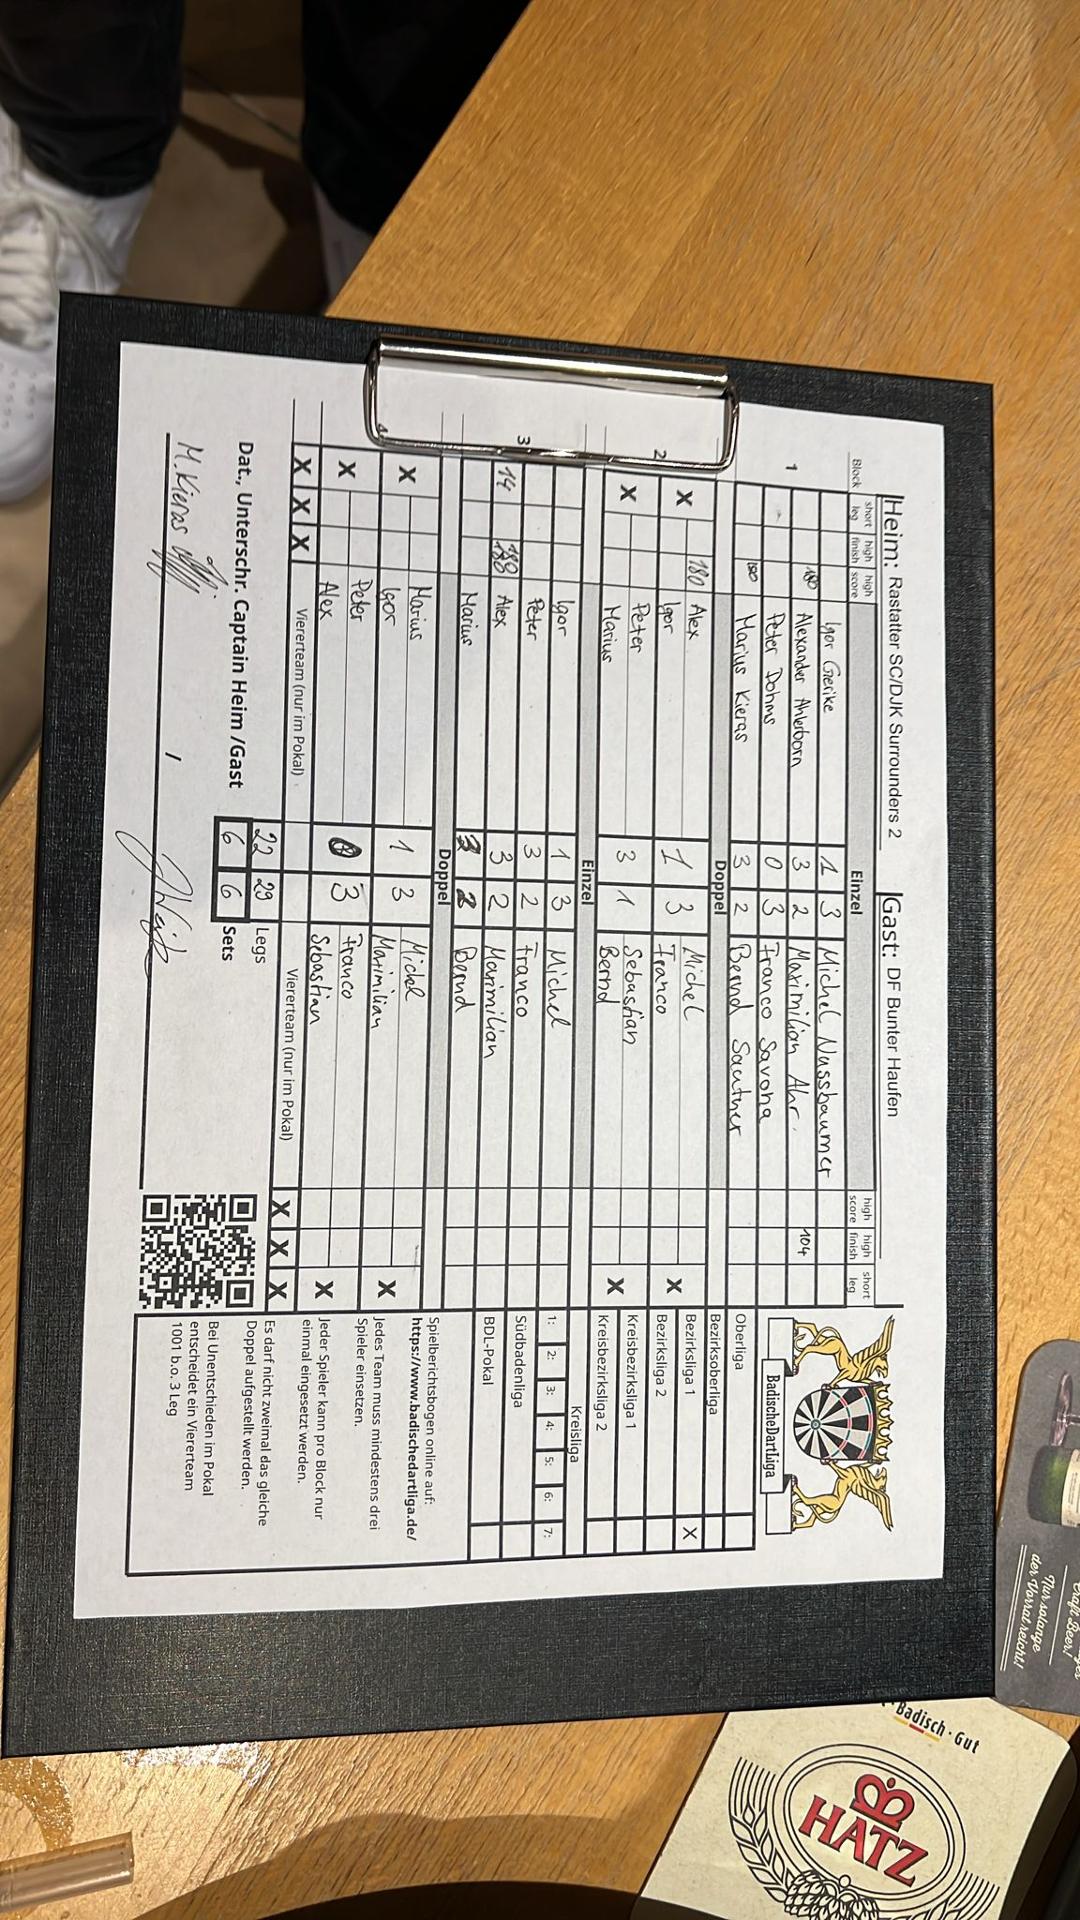 Heim: Rastatter SC/DJK Surrounders 2 Gast: DF Bunter Haufen
Block short leg high finish high score Einzel high score high finish short leg
Igor Gerike 1 3 Michel Nussbaumer
1 180 Alexander Ahlerborn 3 2 Maximilian Ahr. 104
Peter Dohms 0 3 Franco Savona
180 Marius Kieras 3 2 Bernd Sautner
Doppel
X 180 Alex 1 3 Michel X
2 Igor Franco
X Peter 3 1 Sebastian X
Marius Bernd
Einzel
Igor 1 3 Michel
3 Peter 3 2 Franco
14 Alex 3 2 Maximilian
Marius 3 2 Bernd
Doppel
X Marius 1 3 Michel X
4 Igor Maximilian
X Peter 0 3 Franco X
Alex Sebastian
X X X Viererteam (nur im Pokal) Viererteam (nur im Pokal) X X X
22 29 Legs
Dat., Unterschr. Captain Heim /Gast 6 6 Sets
M. Kieras /
BadischeDartLiga
Oberliga
Bezirksoberliga
Bezirksliga 1 X
Bezirksliga 2
Kreisbezirksliga 1
Kreisbezirksliga 2
Kreisliga
1: 2: 3: 4: 5: 6: 7:
Südbadenliga
BDL-Pokal
Spielberichtsbogen online auf:
https://www.badischedartliga.de/
Jedes Team muss mindestens drei
Spieler einsetzen.
Jeder Spieler kann pro Block nur
einmal eingesetzt werden.
Es darf nicht zweimal das gleiche
Doppel aufgestellt werden.
Bei Unentschieden im Pokal
entscheidet ein Viererteam
1001 b.o. 3 Leg
Craft Beer!
Nur solange
der Vorrat reicht!
Badisch · Gut
HATZ